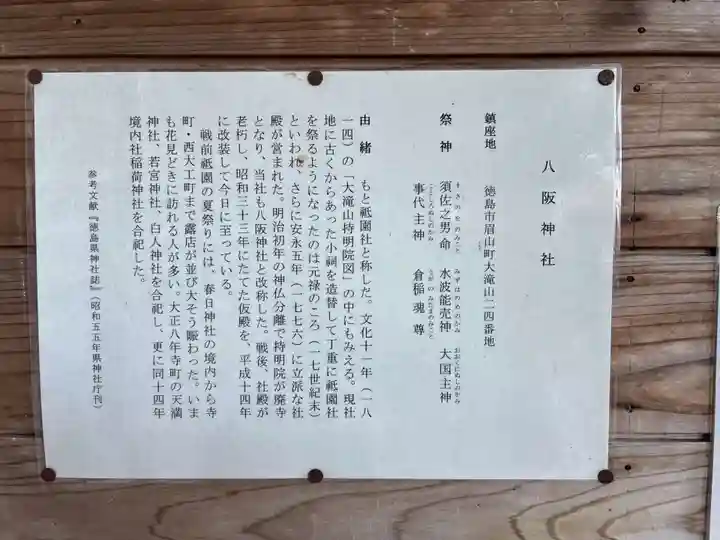 八阪神社
鎮座地　徳島市眉山町大滝山二四番地
祭　神　須佐之男命　水波能売神　大国主神
すさのをのみこと　みずはのめのかみ　おおくにぬしのかみ
事代主神　倉稲魂尊
ことしろぬしのかみ　うがのみたまのみこと
由　緒　もと祇園社と称した。文化十一年（一八
一四）の「大滝山持明院図」の中にもみえる。現社
地に古くからあった小祠を造替して丁重に祇園社
を祭るようになったのは元禄のころ（一七世紀末）
といわれ、さらに安永五年（一七七六）に立派な社
殿が営まれた。明治初年の神仏分離で持明院が廃寺
となり、当社も八阪神社と改称した。戦後、社殿が
老朽し、昭和三十三年にたてた仮殿を、平成十四年
に改装して今日に至っている。
戦前祇園の夏祭りには、春日神社の境内から寺
町・西大工町まで露店が並び大そう賑わった。いま
も花見どきに訪れる人が多い。大正八年寺町の天満
神社、若宮神社、白人神社を合祀し、更に同十四年
境内社稲荷神社を合祀した。
参考文献『徳島県神社誌』（昭和五五年県神社庁刊）